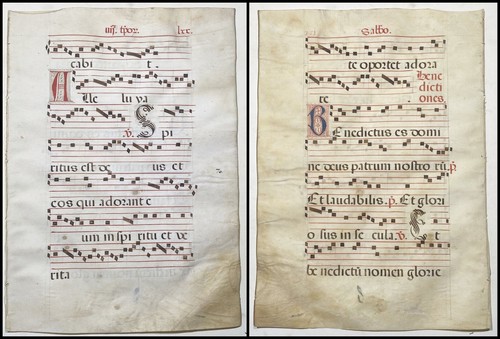 iiii. tp̄oꝝ. lxx.
cabi t.
Alle lu ya
℣. Spi
ritus est de us et
eos qui adorant e
um in spi ritu et ve
rita
Sabbo.
te oportet adora
Bene
te dicti
ones.
Benedictus es domi
ne deus patrum nostro rū. p̄.
Et laudabilis. p̄. Et glori
o sus in se cula. ℣. Et
benedictū nomen glorie